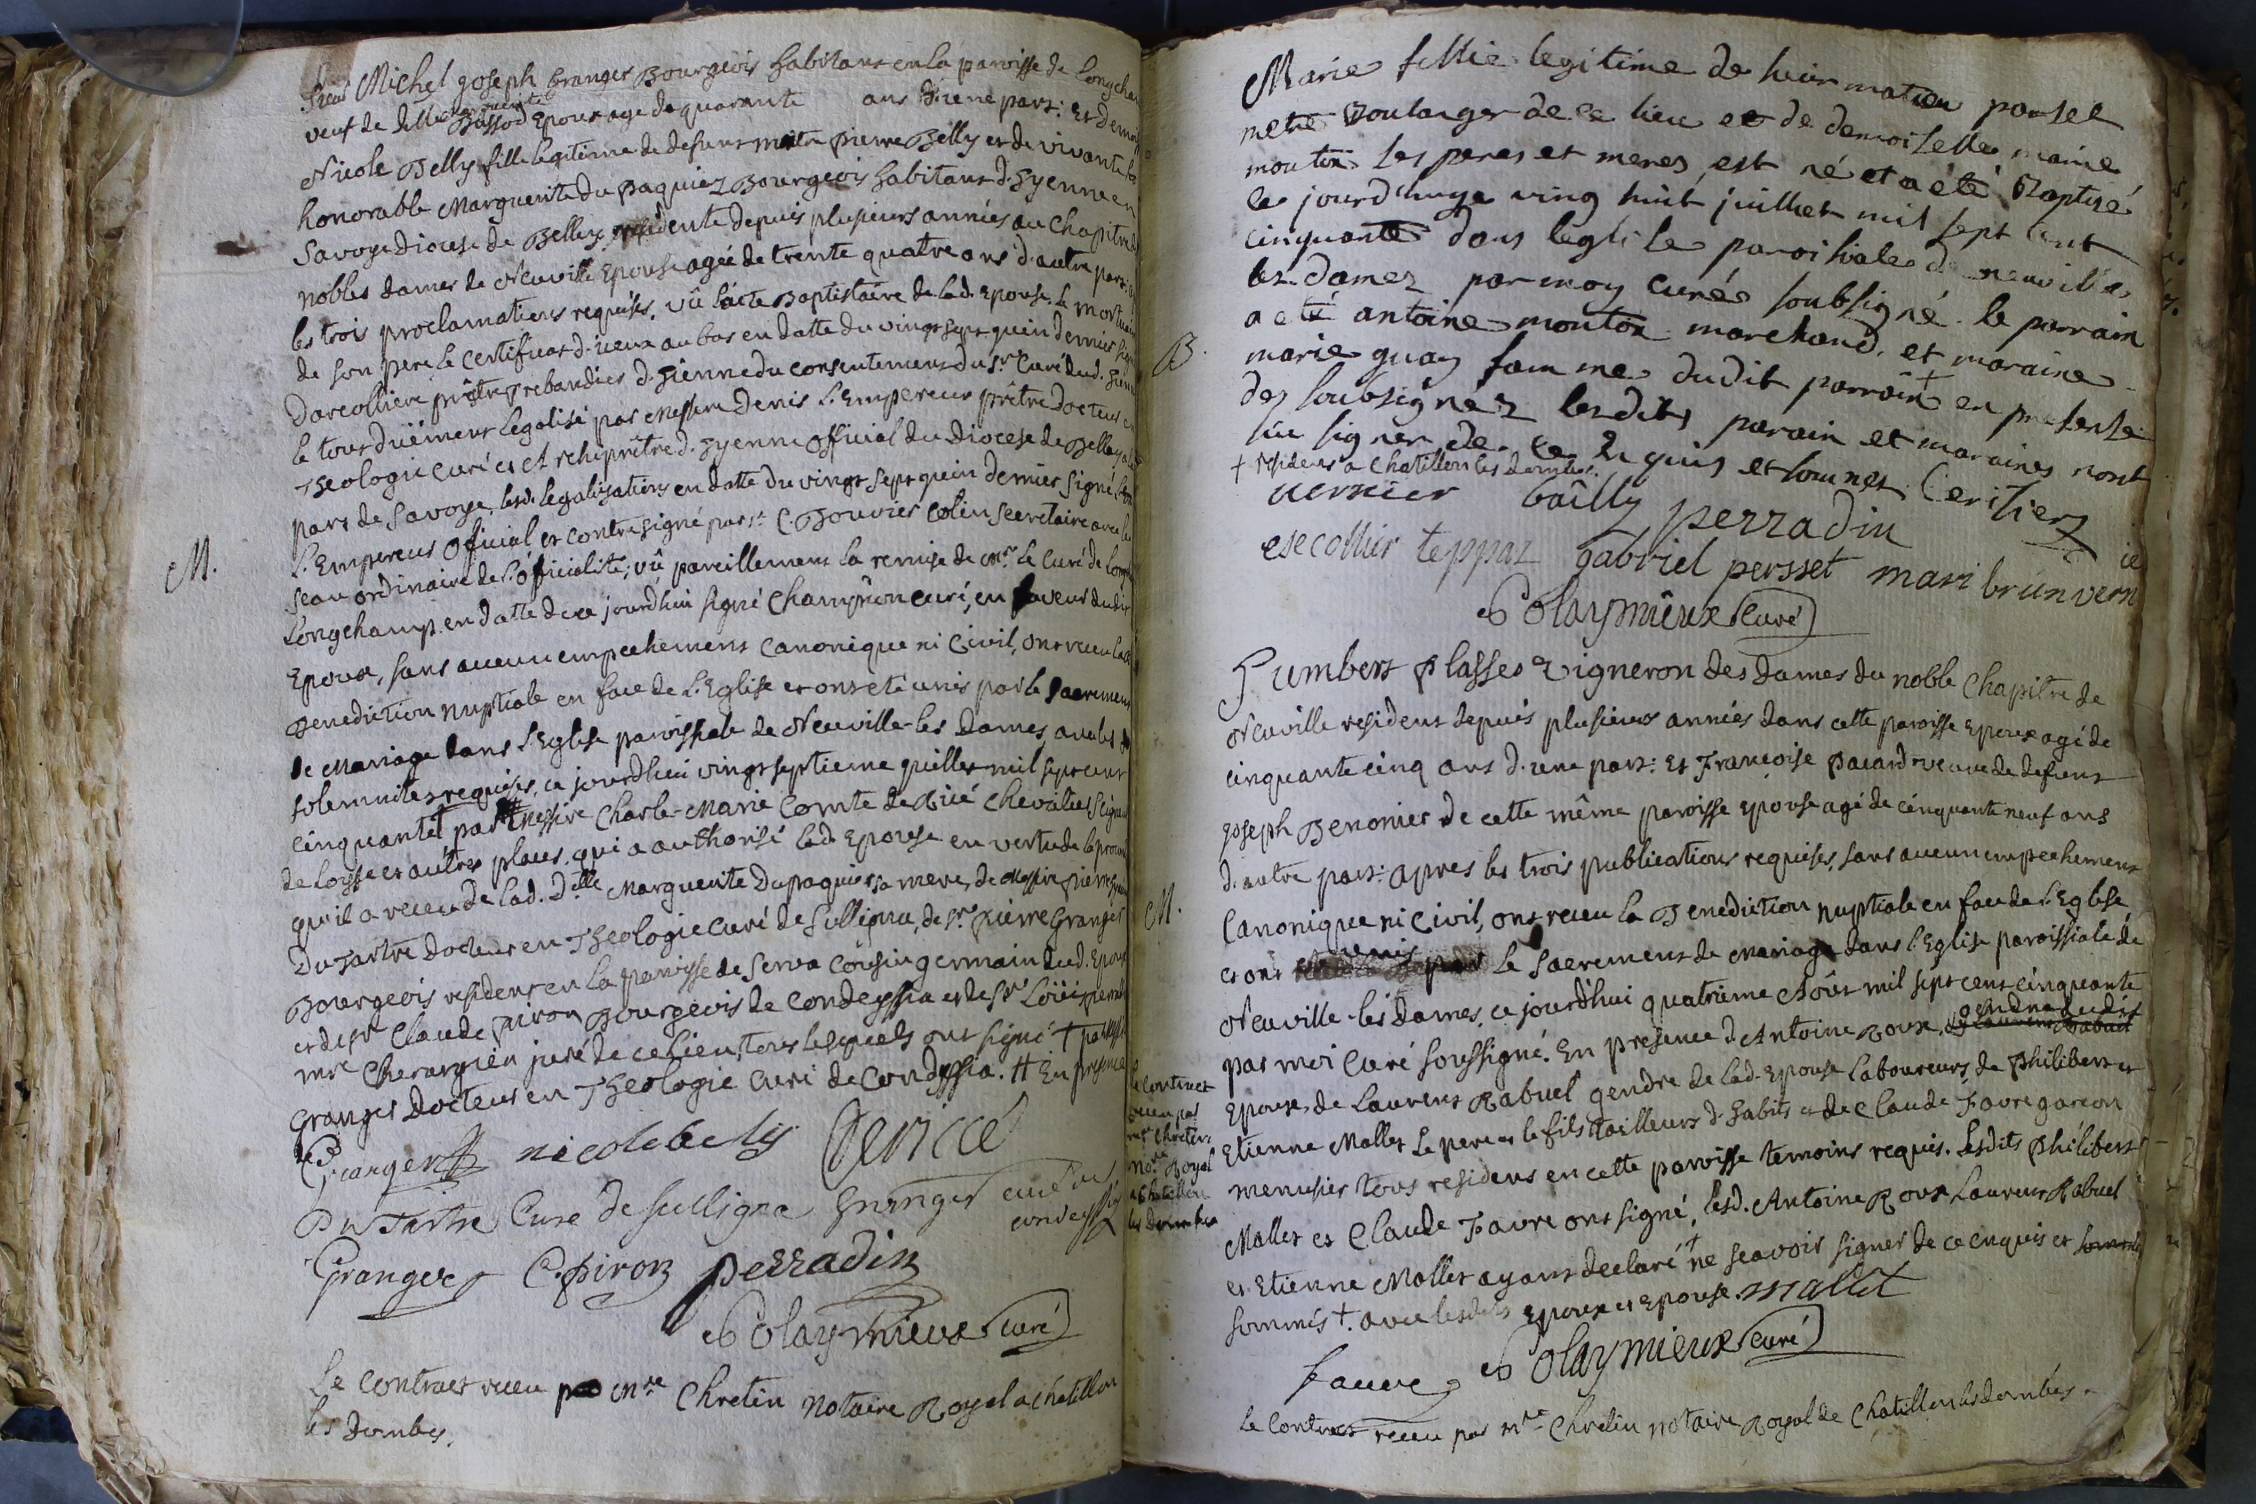 Sieur Michel Joseph Granger Bourgeois habitant en la paroisse de Longcha
veuf de dlle Bussod Epoux age de quarante ans d'une part: Et demois
Nicole Belly fille legitime de defunt maitre pierre Belly et de vivante
honorable Marguerite du paquier Bourgeois habitant d'Hyenne en
Savoye Diocese de Belley residente depuis plusieurs années au Chapitre
nobles dames de Neuville Epouse agée de trente quatre ans d'autre part:
les trois proclamations requises, vû l'acte Baptistaire de lad. Epouse, le mortuaire
de son pere le certificat d'iceux au bas en datte du vingt sept quin dernier signé
Darcolliere prêtre d'Hienne du consentement du Sr Curé dud. Hienne
le tout duëment legalisé par Messire Denis L'Empereur prêtre Docteur en
Theologie curé et Archiprêtre d'Hyenne official du Diocese de Belley
part de Savoye, lesd. legalisations en datte du vingt sept quin dernier signé
L'Empereur official et contresigné par Sr C. Bouvier Colin secretaire avec le
seau ordinaire de l'officialité; vû pareillement la remise de Mr. le Curé de
Longchamp en datte de ce jourd'hui signé Champion curé, en faveur dudit
Epoux, sans aucun empechement canonique ni civil, ont recu la
Benediction nuptiale en face de L'Eglise et ont eté unis par le sacrement
de Mariage dans L'Eglise paroissiale de Neuville-les Dames, avec les
solemnites requises, ce jourd'hui vingt septieme quillet mil sept cent
cinquante† par # Messire Charle-Marie Comte de Ricé Chevalier Seigneur
de Loysse et autres places, qui a authorisé lad. Epouse en vertu de la procu
qu'il a receu de lad. Dlle Marguerite Dupaquier sa mere, de Messire pierre
Du Tartre Docteur en Theologie Curé de Sulligna, de Sr. pierre Granger
Bourgeois resident en la paroisse de Serva cousin germain dud. Epoux
et de Sr Claude piron Bourgeois de Condeyssia et de Sr Loüis perradin
mre Cherurgien juré de ce Lieu, tous lesquels ont signé † par Messire
Granger Docteur en Theologie curé de Condeyssia. # En presence
M.
Granger nicole belly De Riccé
Du Tartre Curé de sulligna Granger curé de
condeyssia
Granger C. piron perradin
Polaymieux curé
Le contract receu par Mre Chretin Notaire Royal a Chatillon
les Dombes.
le contract
receu par
mre Chretin
nore Royal
a Chatillon
les Dombes
Marie fillie legitime de sieur mateu persset
metre Boulanger de ce lieu et de demoiselle marie
mouton les peres et meres, est né et a été Baptisé
ce jourd'huye ving huit juillet mil sept cent
cinquante dans leglise paroissiale de neuville
les Damez par moy curée soubsigné. le parrain
a eté antoine mouton marchand, et maraine
marie guay famme dudit parrain† en presense
des soubsignez lesdits parain et maraines nont
sçu signer de ce enquis et sommes
† residens a Chatillon les dombes.
B.
vernier bailly perradin Ceritiers
escollier teppaz gabriel persset mari brun vern
Polaymieux curé
Humbert plasses Vigneron des Dames du noble Chapitre de
Neuville resident depuis plusieurs années dans cette paroisse Epoux agé de
cinquante cinq ans d'une part: Et Françoise pacard veuve de defunt
Joseph Benonier de cette même paroisse Epouse agé de cinquante neuf ans
d'autre part: apres les trois publications requises, sans aucun empechement
Canonique ni Civil, ont receu la Benediction nuptiale en face de L'Eglise
et ont eté unis par le sacrement de Mariage dans L'Eglise paroissiale de
Neuville-les Dames, ce jourd'hui quatrieme Aôut mil sept cent cinquante
par moi Curé soussigné. En presence d'Antoine Roux, gendre dudit
Epoux, de Laurent Rabuel gendre de lad. Epouse Laboureurs, de Philibert et
Etienne Mallet le pere et le fils tailleurs d'habits et de Claude Favre garcon
menusier tous residens en cette paroisse temoins requis. Lesdits Philibert
Mallet et Claude Favre ont signé, lesd. Antoine Roux Laurent Rabuel
et Etienne Mallet ayant declaré† ne scavoir signer de ce enquis et
sommés †. avec lesdits Epoux et Epouse. mallet
M.
favre Polaymieux curé
le contract receu par mre Chretin notaire Royal de Chatillon les dombes.